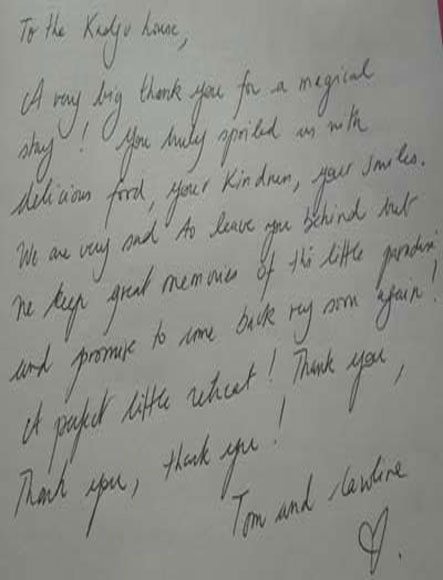 To the Kadju house,
A very big thank you for a magical
stay! You truly spoiled us with
delicious food, your kindness, your smiles.
We are very sad to leave you behind but
we keep great memories of this little paradise
and promise to come back very soon again!
A perfect little retreat! Thank you,
Thank you, thank you!
Tom and